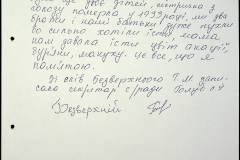 двоє дітей, сестричка з
голоду померла у 1933 році, ми два
брати і наші батьки дуже пухли
бо сильно хотіли їсти, мама
нам давала їсти цвіт акації,
бур'яни, макуху. Це все, що я
пам'ятаю.
Зі слів Безверхнього Г.М. запи-
сала секретар с/ради Голуб
Безверхній